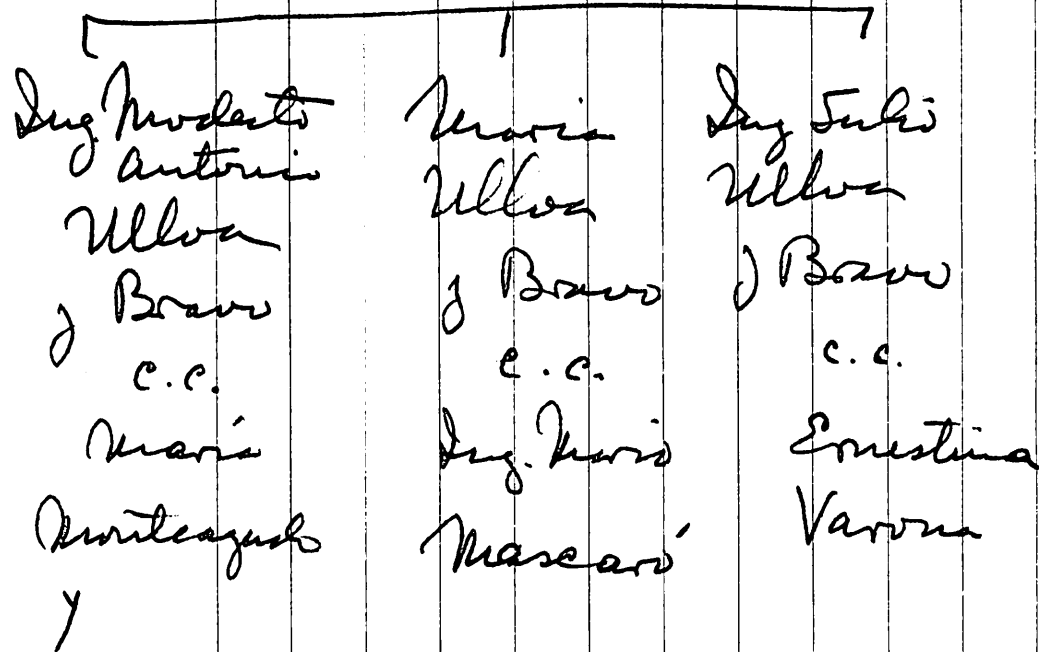 Ing. Modesto
Antonio
Ulloa
y Bravo
c.c.
María
Monteagudo
y
Maria
Ulloa
y Bravo
c.c.
Ing. Mario
Mascaró
Ing Julio
Ulloa
y Bravo
c.c.
Ernestina
Varona